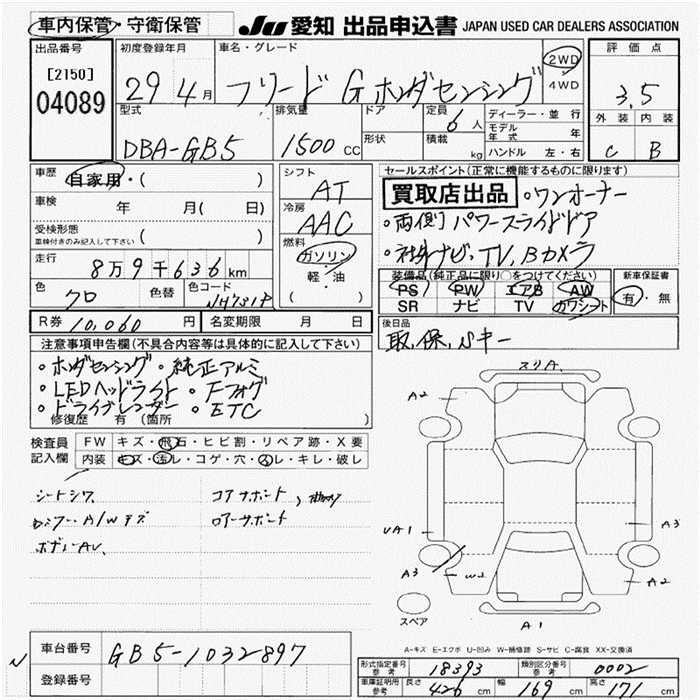 車内保管・守衛保管 JU 愛知 出品申込書 JAPAN USED CAR DEALERS ASSOCIATION
出品番号
[2150]
04089
初度登録年月
29 4月
車名・グレード
フリード G ホンダセンシング
2WD
・
4WD
評価点
3.5
外装 内装
C B
型式
DBA-GB5
排気量
1500 CC
ドア
形状
定員
6人
積載
kg
ディーラー・並行
モデル年式 年
ハンドル 左・右
車歴
自家用・( )
車検 年 月( 日)
受検形態
車検付きのみ記入して下さい ( )
走行
8万9千636km
色
クロ
色替
色コード
NH731P
シフト
AT
冷房
AAC
燃料
ガソリン
・
軽・油
( )
セールスポイント(正常に機能するものに限ります)
買取店出品 ・ワンオーナー
・両側パワースライドドア
・社外ナビ、TV、Bカメラ
装備品(純正品に限り○をつけてください)
PS PW エアB AW
SR ナビ TV カワシート
新車保証書
有・無
R券 10,060 円 名変期限 月 日
後日品
取、保、Sキー
注意事項申告欄(不具合内容等は具体的に記入して下さい)
・ホンダセンシング ・純正アルミ
・LEDヘッドライト ・Fフォグ
・ドライブレコーダー ・ETC
修復歴 有(箇所 )
検査員
記入欄
FW キズ・飛石・ヒビ割・リペア跡・X要
内装 キズ・汚レ・コゲ・穴・スレ・キレ・破レ
シートシワ
コアサポート
ロアーサポート
ボディーAU、
スリA、
A2
UA1
A3
A3
W2
A2
A1
スペア
A-キズ E-エクボ U-凹み W-補修跡 S-サビ C-腐食 XX-交換済
車台番号 GB5-1032897
登録番号
N
型式指定番号
参考
18393
類別区分番号
参考
0002
車庫証明用
参考
長さ 426 cm 幅 169 cm 高さ 171 cm